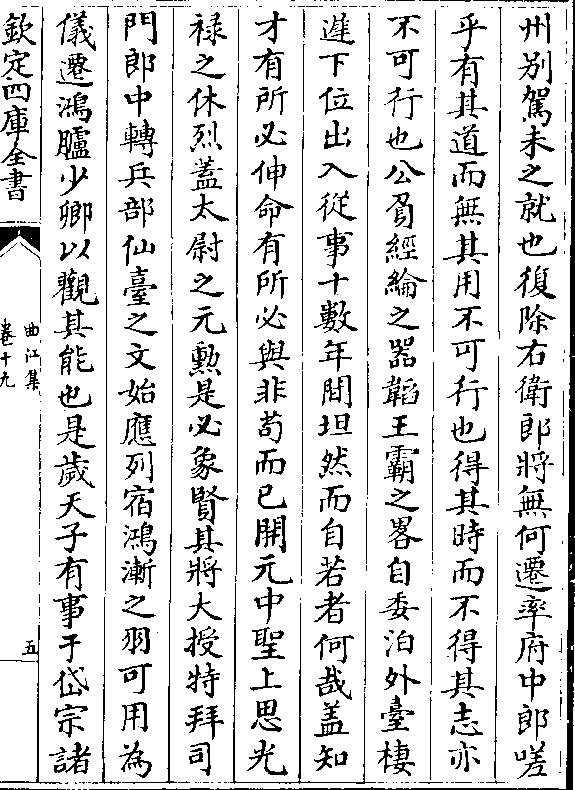 州别駕未之就也復除右衛郎將無何遷率府中郎嗟
乎有其道而無其用不可行也得其時而不得其志亦
不可行也公負經綸之器韜王霸之畧自委泊外臺棲
遲下位出入從事十數年間坦然而自若者何哉盖知
才有所必伸命有所必與非苟而已開元中聖上思光
禄之休烈蓋太尉之元勲是必象賢其將大授特拜司
門郎中轉兵部仙臺之文始應列宿鴻漸之羽可用為
儀遷鴻臚少卿以觀其能也是歲天子有事于岱宗諸
欽定四庫全書
曲江集
卷十九
五